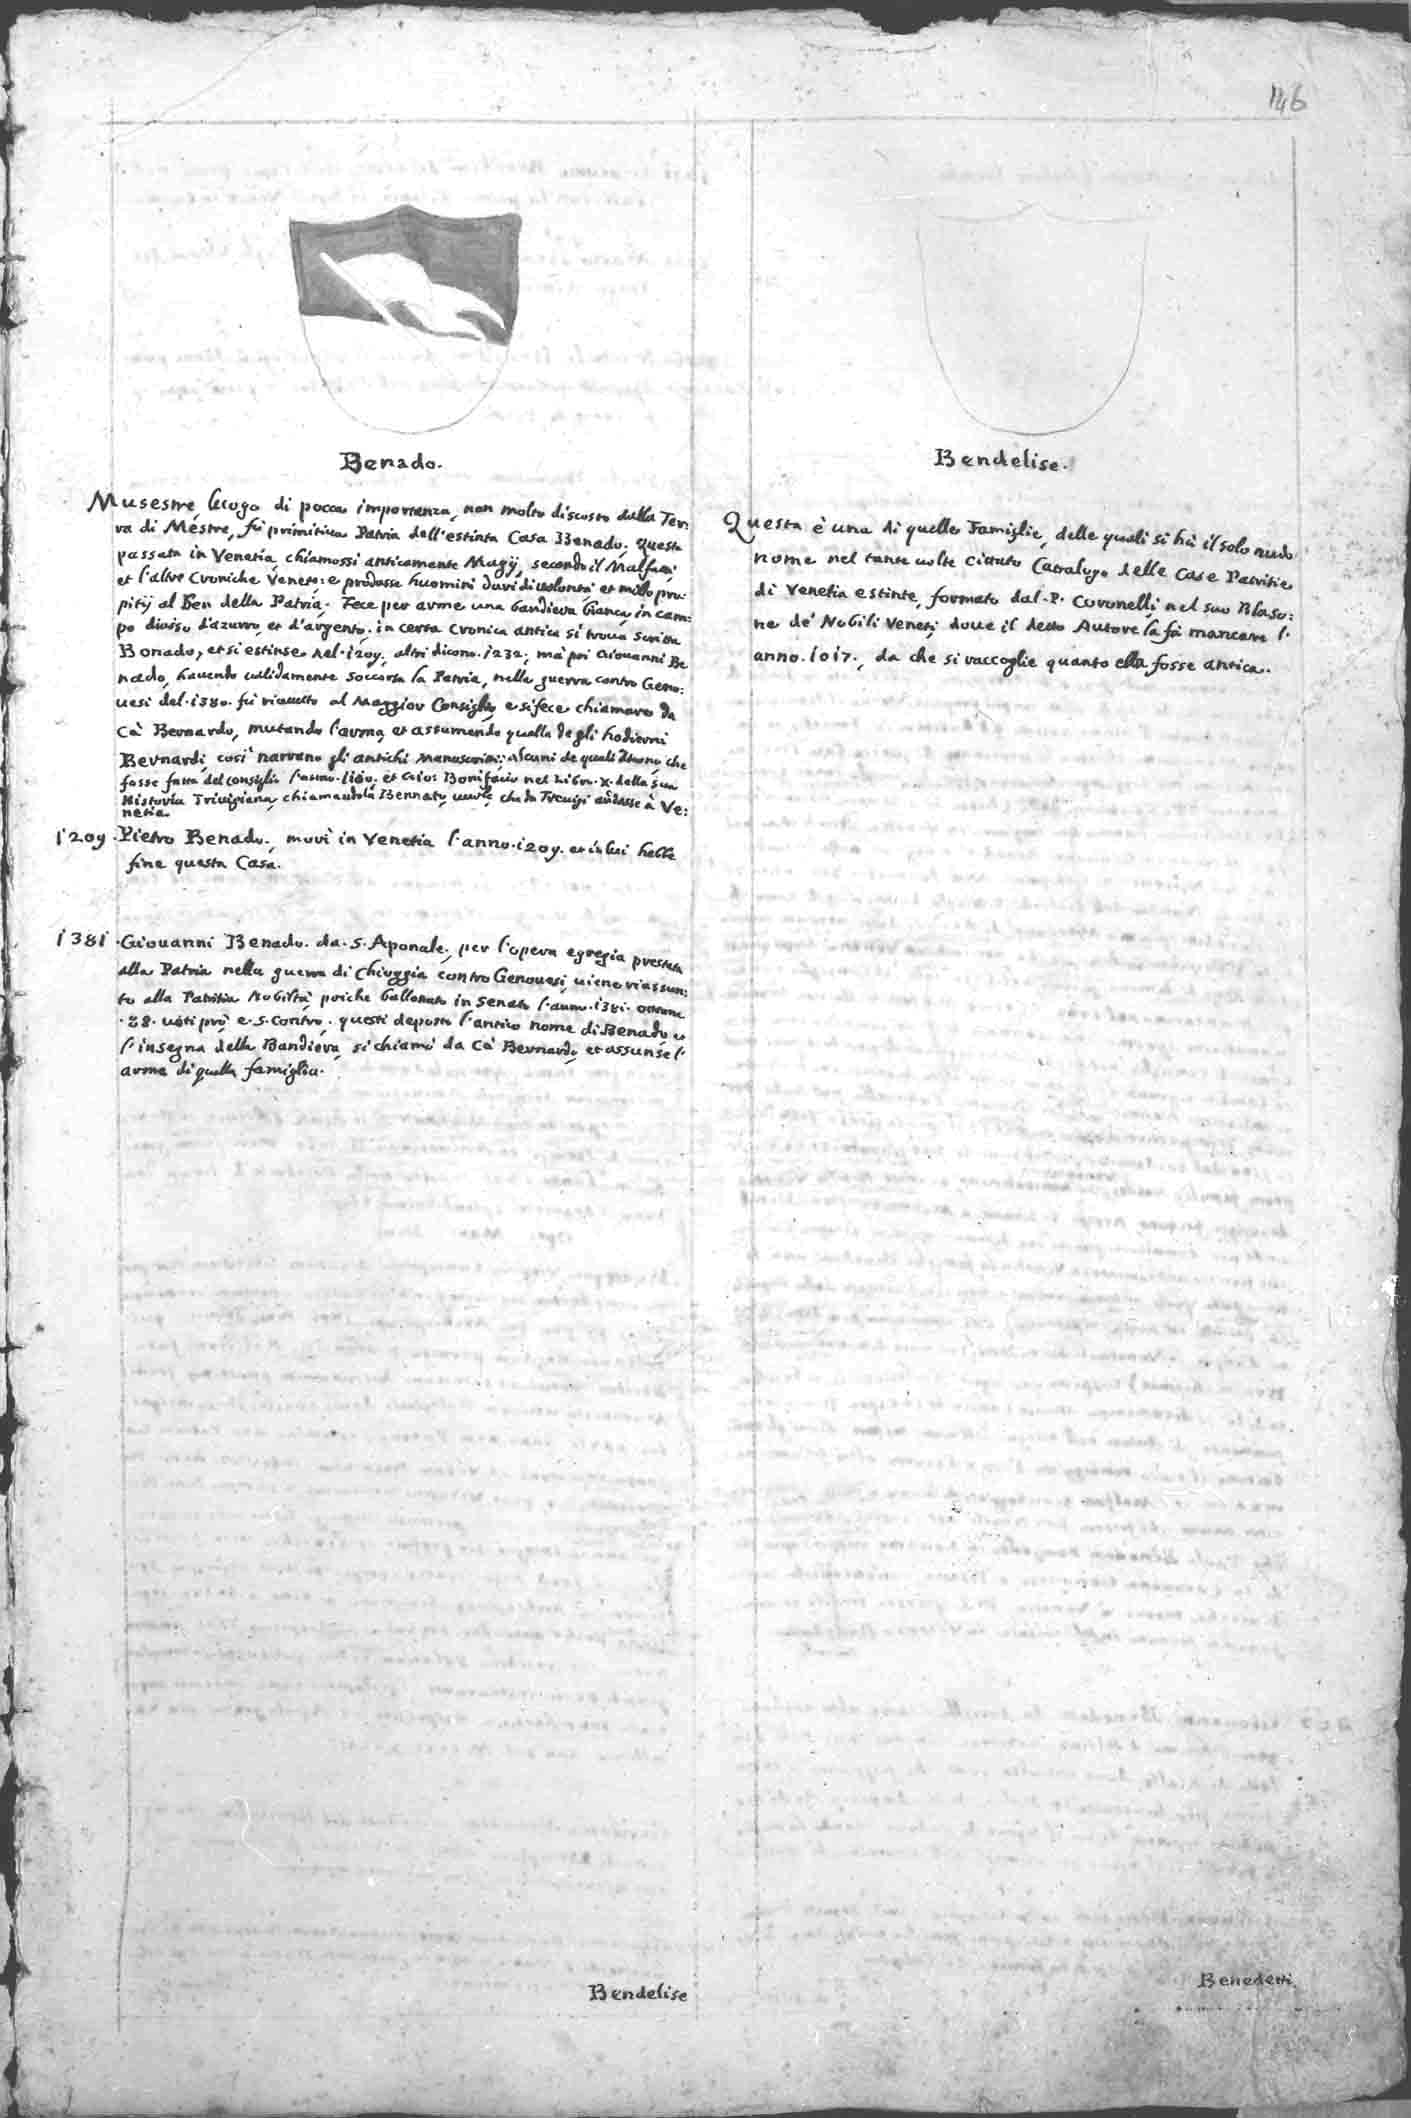 146
Benado.
Musestre, luogo di pocca importanza, non molto discosto dalla Ter:
ra di Mestre, fù primitiua Patria dell'estinta Casa Benado; questa
passata in Venetia, chiamossi anticamente Magij, secondo il Malfatti,
et l'altre Croniche Venete; e prodosse huomini duri di uolontà, et molto pro:
pitij al Ben della Patria. Fece per arme una bandiera bianca, in cam:
po diuiso d'azurro, et d'argento. in certa Cronica antica si troua scritta
Bonado, et si estinse nel .1209., altri dicono .1232., mà poi Giouanni Be
nado, hauendo ualidamente soccorsa la Patria, nella guerra contro Geno:
uesi del .1380. fù riceuuto al Maggior Consiglio, e si fece chiamare da
Cà Bernardo, mutando l'arma, et assumendo quella degli hodierni
Bernardi, così narrano gli antichi Manuscritti; alcuni de quali dicono, che
fosse fatta del consiglio l'anno .1180. et Gio: Bonifacio nel Libro .X. della sua
Historia Triuigiana, chiamandola Bennato, uuole, che da Treuigi andasse à Ve:
netia.
1209. Pietro Benado., morì in Venetia l'anno .1209. et in lui hebbe
fine questa Casa.
1381. Giouanni Benado. da .S. Aponale., per l'opera egregia prestata
alla Patria nella guerra di Chioggia contro Genouesi, uiene riassun:
to alla Patritia Nobiltà, poiche ballottato in Senato l'anno .1381. ottenne
.28. uoti prò, e .5. Contro. questi deposto l'antico nome di Benado, e
l'insegna della Bandiera, si chiamò da Cà Bernardo, et assunse l'
arma di quella famiglia.
Bendelise
Bendelise.
Questa è una di quelle Famiglie, delle quali si hà il solo nudo
nome nel tante uolte citato Catalogo delle Case Patritie
di Venetia estinte, formato dal .P. Coronelli, nel suo Blaso:
ne de' Nobili Veneti, doue il detto Autore la fà mancare l'
anno .1017., da che si raccoglie quanto ella fosse antica.
Benedetti.